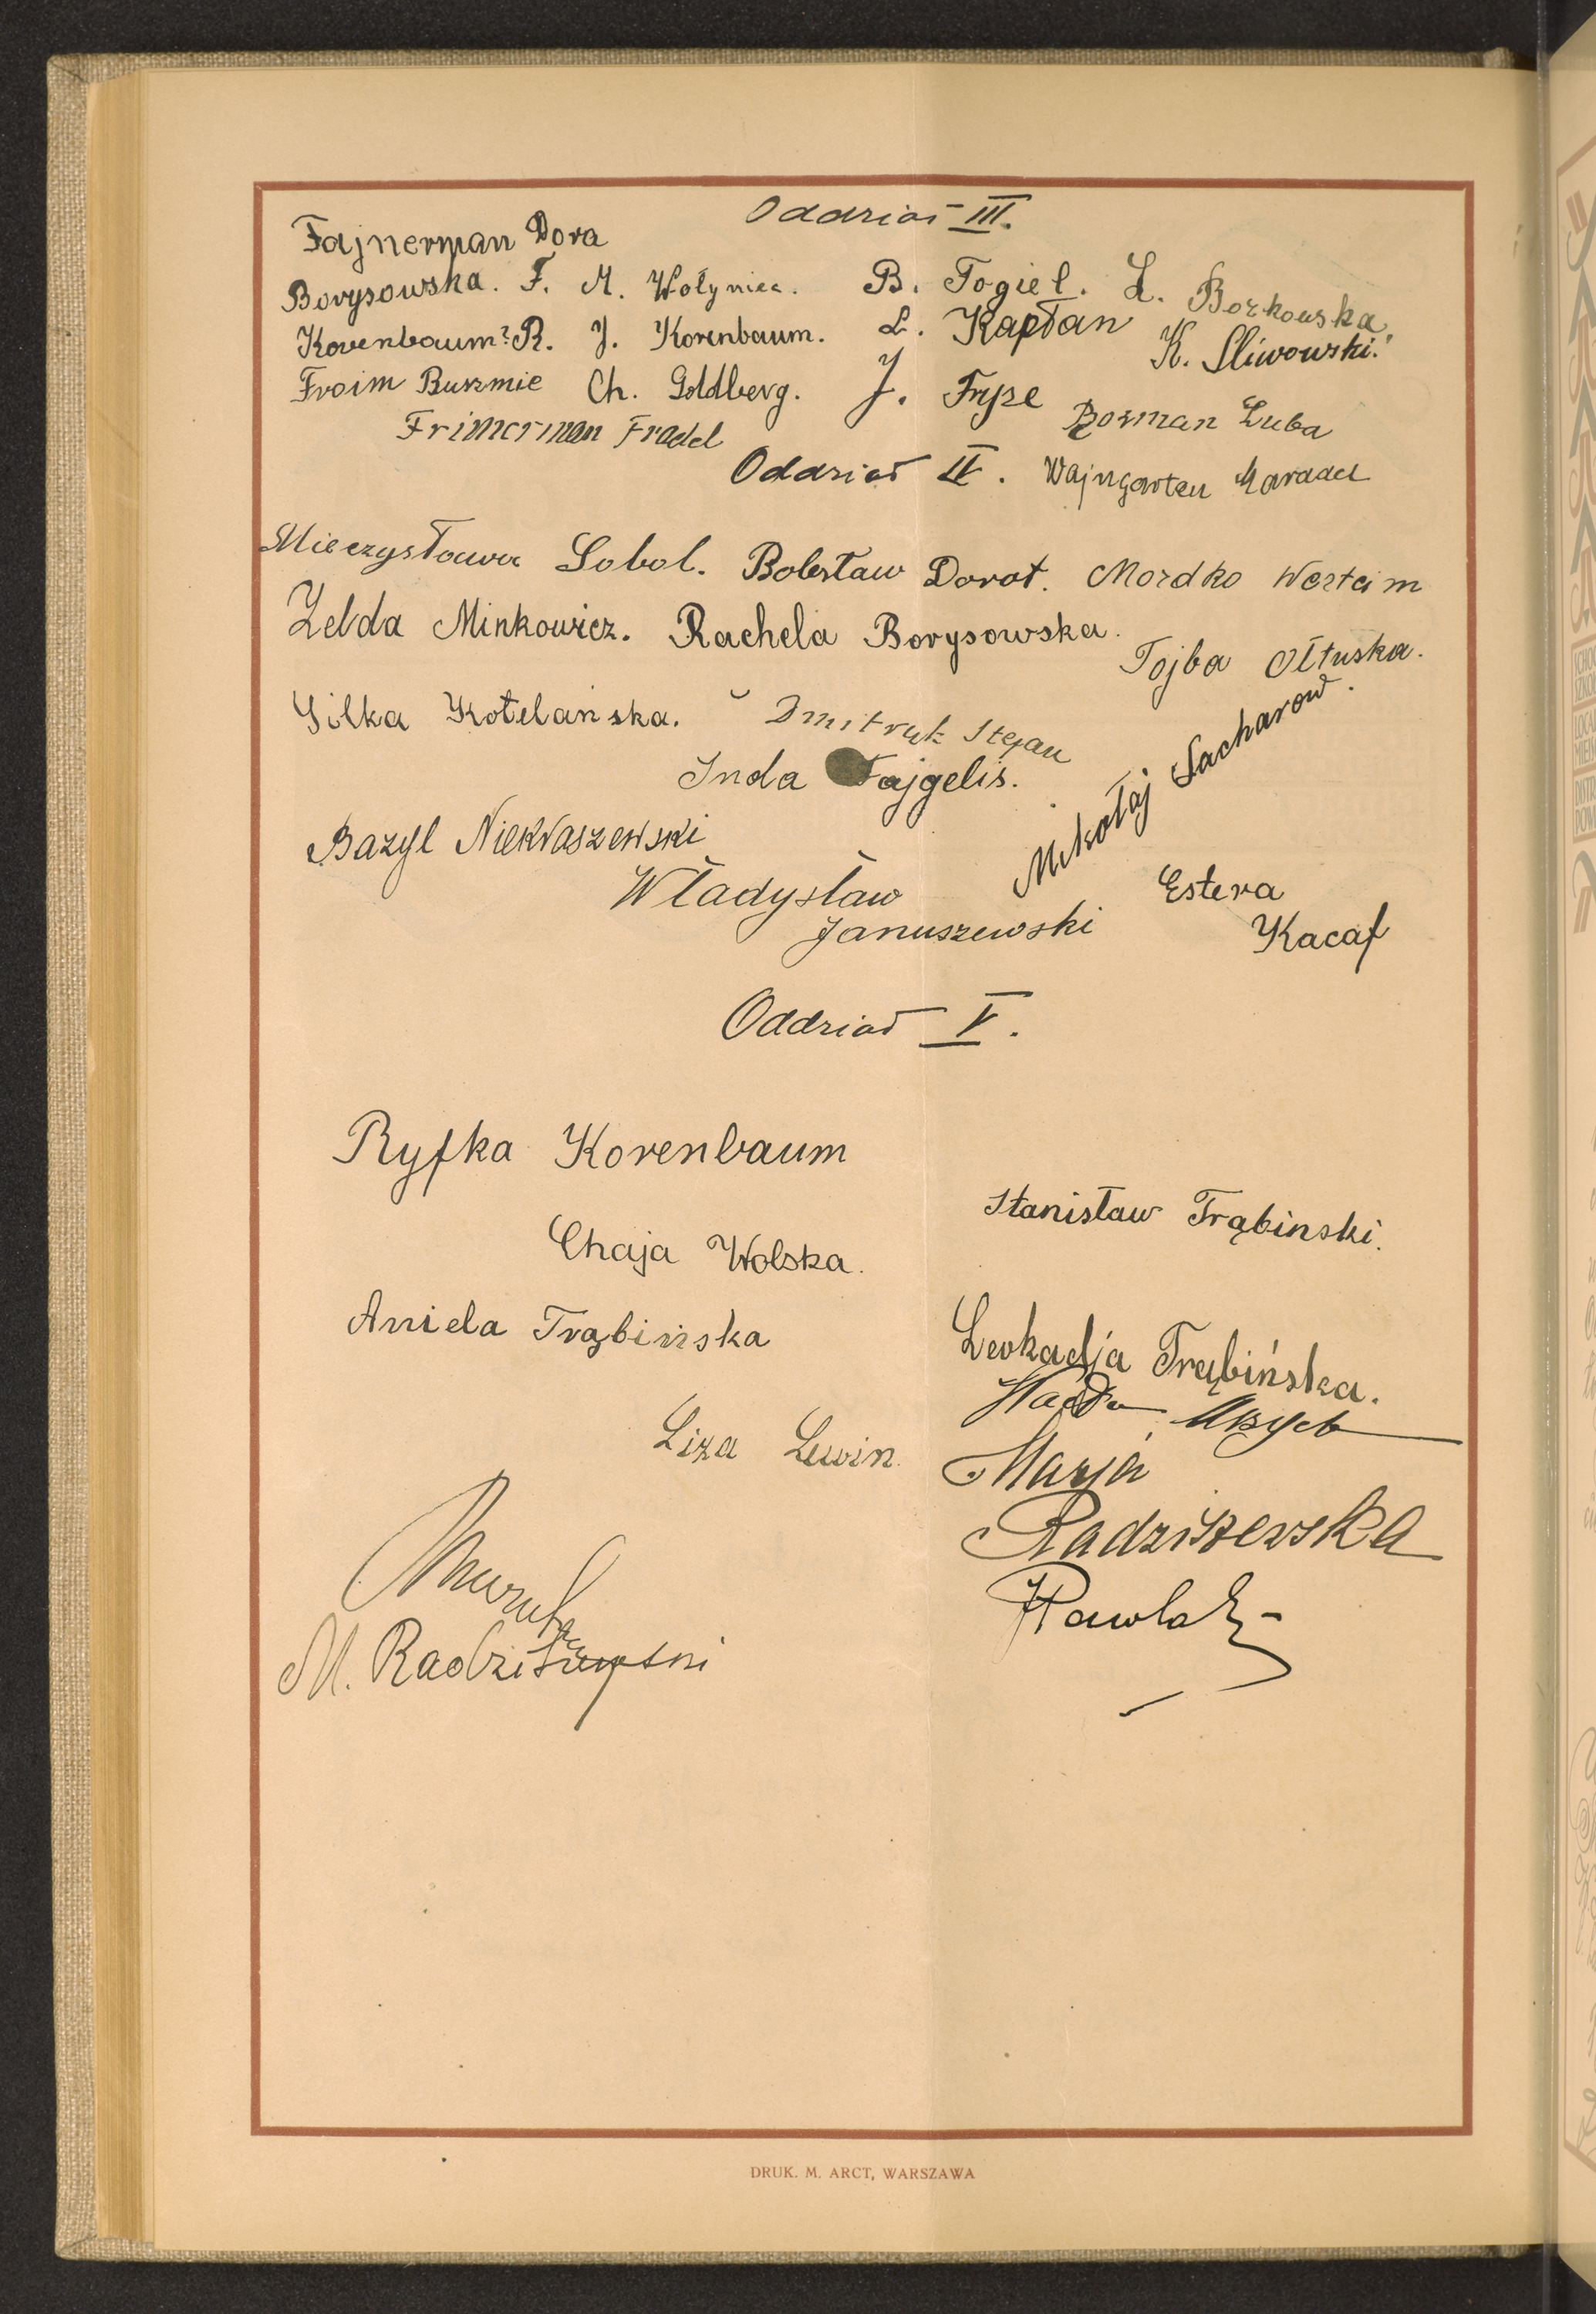 Oddział III.
Fajnerman Dora
Borysowska. F. M. Wołyniec. B. Fogiel. L. Borkowska.
Korenbaum R. J. Korenbaum. L. Kapłan K. Sliwowski.
Froim Buszmic Ch. Goldberg. J. Fryze Bozman Luba
Frimerman Fradel
Oddział IV. Wajngarten
Mieczysława Sobol. Bolesław Dorot. Mordko Werteim
Zelda Minkowicz. Rachela Borysowska.
Tojba Ołtuska.
Gilka Kotelańska. Dmitruk Stefan
Inda Fajgelis.
Mikołaj Sacharow.
Bazyl Niekraszewski
Władysław
Januszewski
Estera
Kacaf
Oddział V.
Ryfka Korenbaum
Stanisław Trąbinski.
Chaja Wolska.
Aniela Trąbińska
Leokadja Trąbińska.
Liza Lewin.
Marja
Radziszewska
M. Radziszewski
Pawlak
DRUK. M. ARCT, WARSZAWA